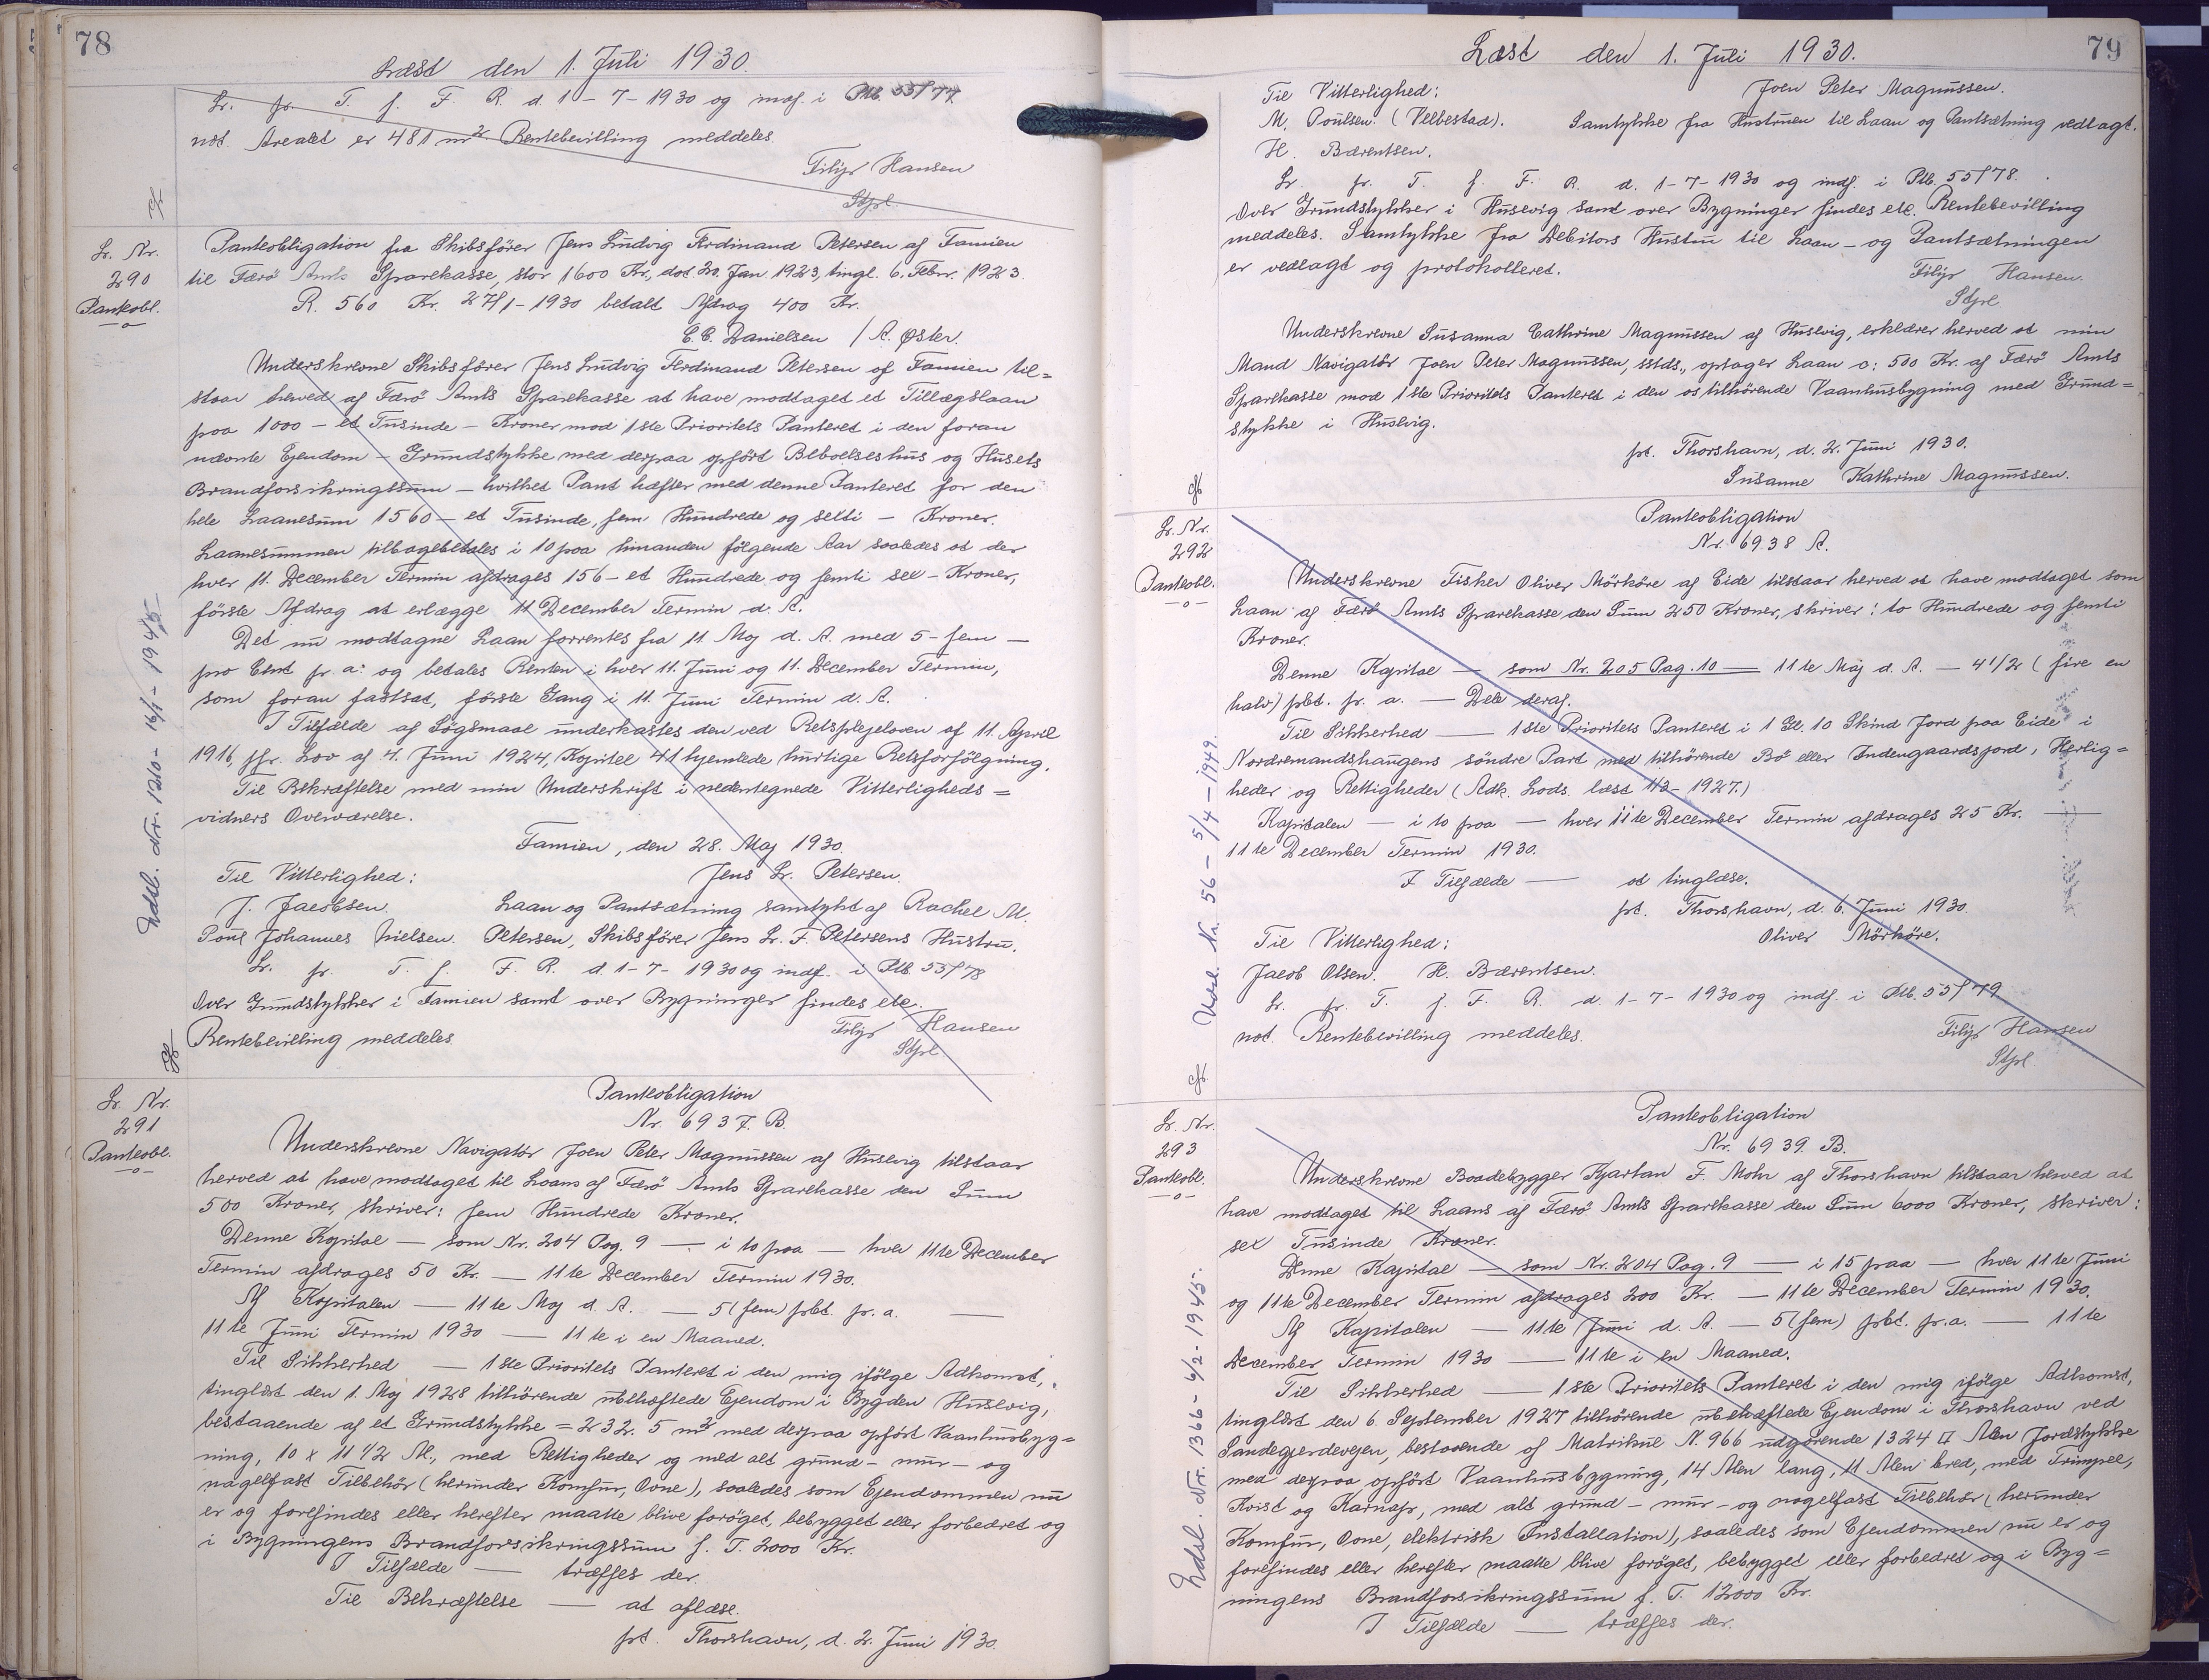 78
Læst den 1. Juli 1930.
Lr. fr. T. f. F. R. d. 1-7-1930 og indf. i Ptb. 55/77
not. Arealet er 481 m² Rentebevilling meddeles.
Filip Hansen
Stpl.
Lr. Nr.
290
Panteobl.
-o-
Panteobligation fra Skibsförer Jens Ludvig Ferdinand Petersen af Famien
til Færö Amts Sparekasse, stor 1600 Kr., dat. 20. Jan. 1923, tingl. 6. Febr. 1923.
R. 560 Kr. 27/1-1930 betalt Afdrag 400 Kr.
C.C. Danielsen / A. Øster.
Underskrevne Skibsförer Jens Ludvig Ferdinand Petersen af Famien til=
staar herved af Færö Amts Sparekasse at have modtaget et Tillægslaan
paa 1000 - et Tusinde - Kroner mod 1ste Prioritets Panteret i den foran
nævnte Ejendom - Grundstykke med derpaa opfört Beboelseshus og Husets
Brandforsikringssum - hvilket Pant hæfter med denne Panteret for den
hele Laanesum 1560 - et Tusinde, fem Hundrede og sexti - Kroner.
Laanesummen tilbagebetales i 10 paa hinanden fölgende Aar saaledes at der
hver 11. December Termin afdrages 156 - et Hundrede og femti sex - Kroner,
förste Afdrag at erlægge 11 December Termin d. A.
Det nu modtagne Laan forrentes fra 11 Maj d. A. med 5 - fem -
pro Cent pr. a: og betales Renten i hver 11. Juni og 11. December Termin,
som foran fastsat, förste Gang i 11. Juni Termin d. A.
I Tilfælde af Sögsmaal underkastes den ved Retsplejeloven af 11. April
1916, jfr. Lov af 4. Juni 1924, Kapitel 41 hjemlede hurtige Retsforfölgning.
Til Bekræftelse med min Underskrift i nedentegnede Vitterligheds=
vidners Overværelse.
Famien, den 28. Maj 1930.
Til Vitterlighed: Jens Lr. Petersen.
J. Jacobsen. Laan og Pantsætning samtykt af Rachel M.
Poul Johannes Nielsen. Petersen, Skibsförer Jens Lr. F. Petersens Hustru.
Lr. fr. T. f. F. R. d. 1-7-1930 og indf. i Ptb 55/78
Over Grundstykker i Famien samt over Bygninger findes etc.
Rentebevilling meddeles. Filip Hansen
Stpl.
Udsl. Nr. 1210 - 16/1 - 1945-
Lr. Nr.
291
Panteobl.
-o-
Panteobligation
Nr. 6937. B.
Underskrevne Navigatör Joen Peter Magnussen af Husevig tilstaar
herved at have modtaget til Laans af Færö Amts Sparekasse den Sum
500 Kroner, skriver: fem Hundrede Kroner.
Denne Kapital - som Nr. 204 Pag. 9 - i 10 paa - hver 11te December
Termin afdrages 50 Kr. - 11te December Termin 1930.
Af Kapitalen - 11te Maj d. A. - 5 (fem) pCt. pr. a. -
11te Juni Termin 1930 - 11te i en Maaned.
Til Sikkerhed - 1ste Prioritets Panteret i den mig ifölge Adkomst,
tinglæst den 1. Maj 1928 tilhörende ubehæftede Ejendom i Bygden Husevig,
bestaaende af et Grundstykke = 232.5 m² med derpaa opfört Vaanhusbyg=
ning, 10 x 11 1/2 Al., med Rettigheder og med alt grund- mur- og
nagelfast Tilbehör (herunder Komfur, Ovne), saaledes som Ejendommen nu
er og forefindes eller herefter maatte blive foröget, bebygget eller forbedret og
i Bygningens Brandforsikringssum f. T. 2000 Kr.
I Tilfælde - træffes der.
Til Bekræftelse - at aflæse.
pt. Thorshavn, d. 2. Juni 1930.
79
Læst den 1. Juli 1930.
Til Vitterlighed: Joen Peter Magnussen.
M. Poulsen. (Velbestad). Samtykke fra Hustruen til Laan og Pantsætning vedlagt.
H. Bærentsen.
Lr. fr. T. f. F. R. d. 1-7-1930 og indf. i Ptb. 55/78.
Over Grundstykker i Husevig samt over Bygninger findes etc. Rentebevilling
meddeles. Samtykke fra Debitors Hustru til Laan- og Pantsætningen
er vedlagt og protokolleret.
Filip Hansen.
Stpl.
Underskrevne Susanna Cathrine Magnussen af Husevig, erklærer herved at min
Mand Navigatör Joen Peter Magnussen, sstds., optager Laan o: 500 Kr. af Færö Amts
Sparekasse mod 1ste Prioritets Panteret i den os tilhörende Vaanhusbygning med Grund=
stykke i Husevig.
pt. Thorshavn, d. 2. Juni 1930.
Susanne Kathrine Magnussen.
Lr. Nr.
292
Panteobl.
-o-
Panteobligation
Nr. 6938 A.
Underskrevne Fisker Oliver Mörköre af Eide tilstaar herved at have modtaget som
Laan af Færö Amts Sparekasse den Sum 250 Kroner, skriver: to Hundrede og femti
Kroner.
Denne Kapital - som Nr. 205 Pag. 10 - 11te Maj d. A. - 4 1/2 (fire en
halv) pCt. pr. a. - Dele deraf.
Til Sikkerhed - 1ste Prioritets Panteret i 1 Gl. 10 Skind Jord paa Eide i
Nordremandshaugens söndre Part med tilhörende Bö eller Indengaardsjord, Herlig=
heder og Rettigheder (Adk. Lods. læst 1/3-1927.)
Kapitalen - i 10 paa - hver 11te December Termin afdrages 25 Kr. -
11te December Termin 1930.
I Tilfælde - at tinglæse.
pt. Thorshavn, d. 6. Juni 1930.
Til Vitterlighed: Oliver Mörköre.
Jacob Olsen. H. Bærentsen.
Lr. fr. T. f. F. R. d. 1-7-1930 og indf. i Ptb. 55/79
not. Rentebevilling meddeles. Filip Hansen
Stpl.
Udsl. Nr. 56 - 5/4 - 1949.
Lr. Nr.
293
Panteobl.
-o-
Panteobligation
Nr. 6939. B.
Underskrevne Baadebygger Kjartan F. Mohr af Thorshavn tilstaar herved at
have modtaget til Laans af Færö Amts Sparekasse den Sum 6000 Kroner, skriver:
sex Tusinde Kroner.
Denne Kapital - som Nr. 204 Pag. 9 - i 15 paa - hver 11te Juni
og 11te December Termin afdrages 200 Kr. - 11te December Termin 1930.
Af Kapitalen - 11te Juni d. A. - 5 (fem) pCt. pr. a. - 11te
December Termin 1930 - 11te i en Maaned.
Til Sikkerhed - 1ste Prioritets Panteret i den mig ifölge Adkomst,
tinglæst den 6. September 1927 tilhörende ubehæftede Ejendom i Thorshavn ved
Sandegjerdevejen, bestaaende af Matrikul N. 966 udgörende 1324 □ Alen Jordstykke
med derpaa opfört Vaanhusbygning, 14 Alen lang, 11 Alen bred, med Trimpel,
Kvist og Karnap, med alt grund- mur- og nagelfast Tilbehör (herunder
Komfur, Ovne, elektrisk Installation), saaledes som Ejendommen nu er og
forefindes eller herefter maatte blive foröget, bebygget eller forbedret og i Byg=
ningens Brandforsikringssum f. T. 12000 Kr.
I Tilfælde - træffes der.
Udsl. Nr. 1366 - 4/2 - 1945-